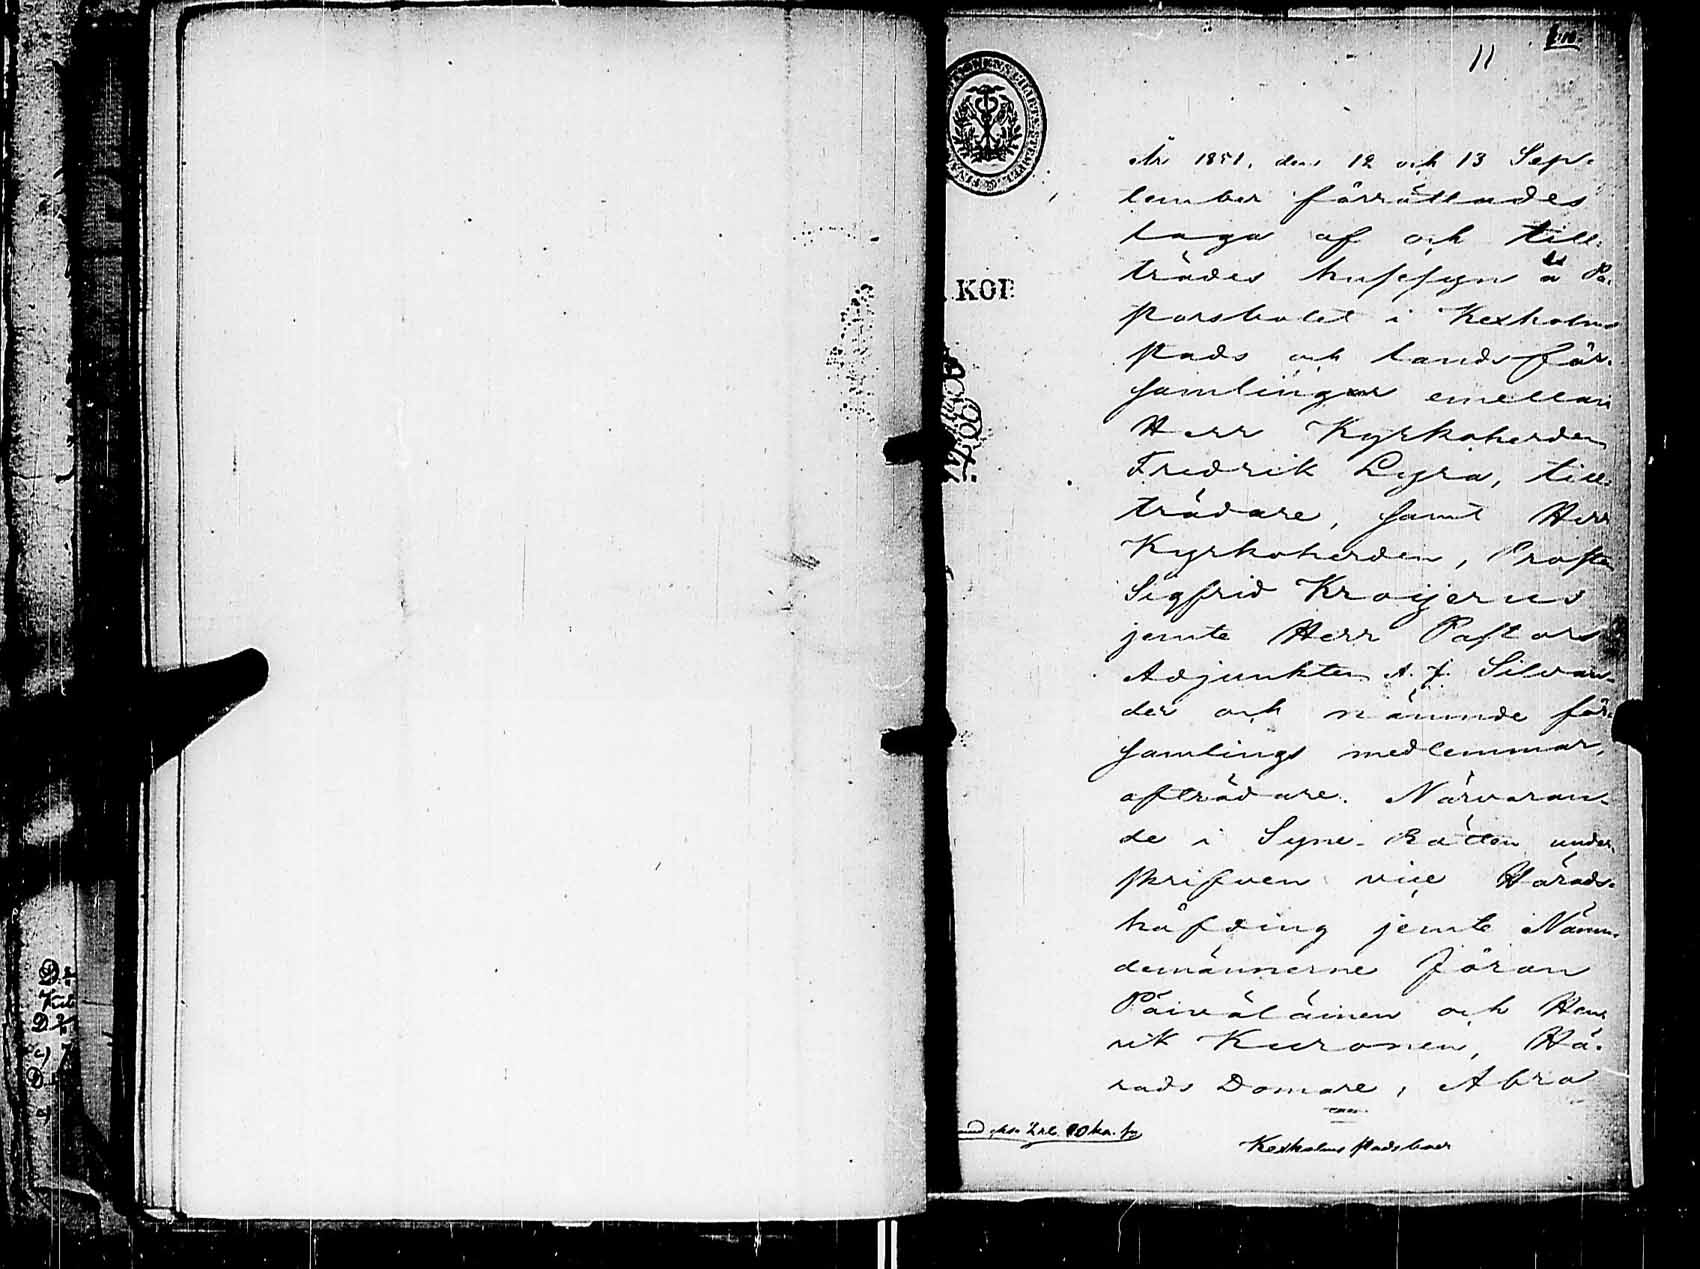 11
År 1851, den 12 och 13 Sep-
tember förrättades
laga af och till-
trädes hussyn å Pa-
storsbolet i Kexholms
stads och landsför-
samlingar emellan
Herr Kyrkoherden
Fredrik Lyra, till-
trädare, samt Herr
Kyrkoherden, Prosten
Sigfrid Kroijerus
jemte Herr Pastors
Adjunkten A. J. Silvan-
der och nämnde för-
samlings medlemmar,
afträdare. Närvaran-
de i Syne-Rätten under-
skrifven vice Härads-
höfding jemte Nämn-
demännerne Jöran
Päiväläinen och Hen
rik Kuronen, Hä-
rads Domare, Abra
KOP
Kexholms stads boer